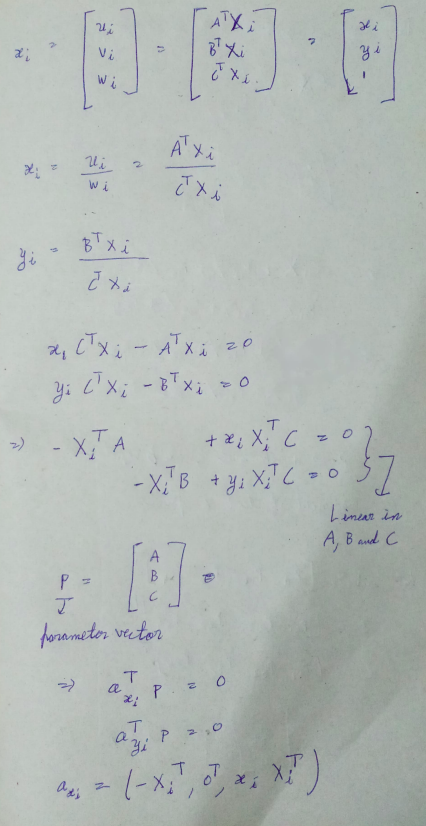 x_i = [u_i; v_i; w_i] = [A^T X_i; B^T X_i; C^T X_i] = [x_i; y_i; 1]
x_i = u_i / w_i = A^T X_i / C^T X_i
y_i = B^T X_i / C^T X_i
x_i C^T X_i - A^T X_i = 0
y_i C^T X_i - B^T X_i = 0
=> - X_i^T A + x_i X_i^T C = 0
- X_i^T B + y_i X_i^T C = 0
Linear in
A, B and C
P = [A; B; C]
parameter vector
=> a_{x_i}^T P = 0
a_{y_i}^T P = 0
a_{x_i} = (-X_i^T, 0^T, x_i X_i^T)